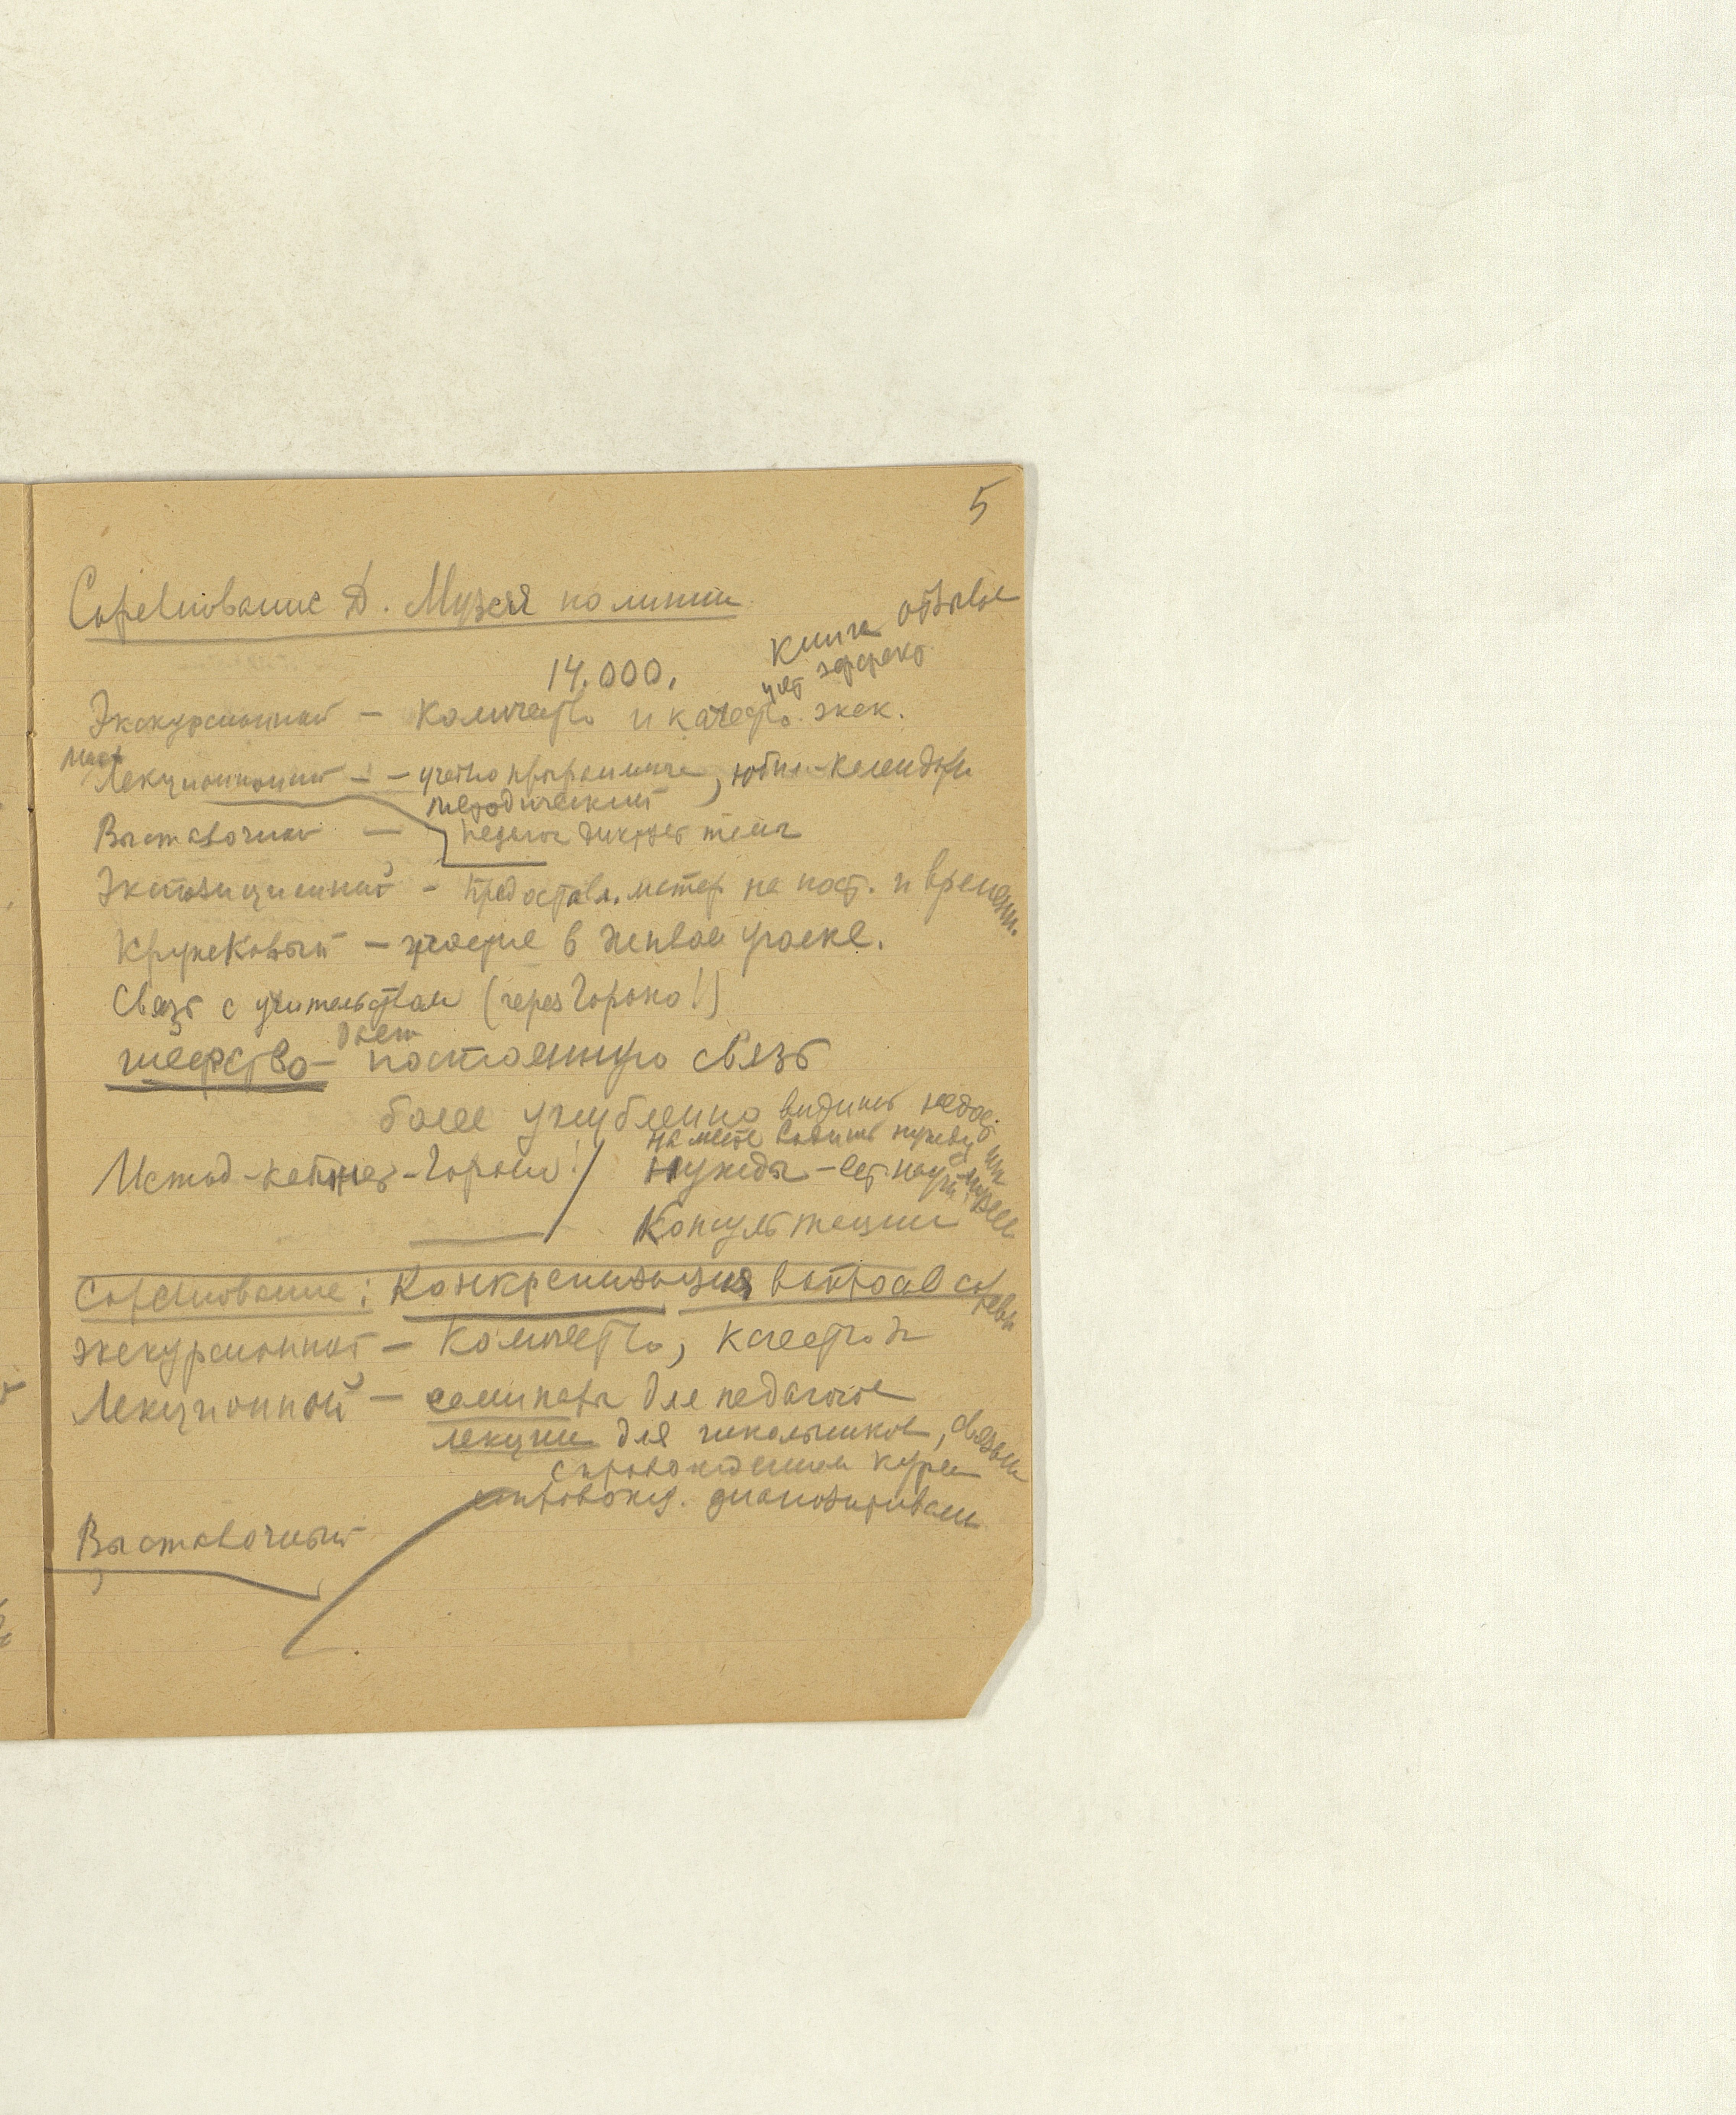 5
Соревнование Д. Музея по линии
книга отзывов
14.000.
учет эффект
Экскурсионной – Количество и качество экск.
Лекционной – – учетно программн, юбил-календарн
методический
Выставочной – педагог диктует темы
Экспозиционной – предоставл. матер. на пост. и времени.
Кружковый – участие в живом уголке.
Связь с учительством (через Гороно!)
дает
шефство – постоянную связь
более углубленно видишь недост.
на месте видишь нужду
Метод-кабинет – Гороно! нужды –
Консультации
Соревнование: Конкретизация вопросов соревн
экскурсионной – Количество, качество
Лекционной – семинары для педагогов
лекции для школьников, связан
сопровождением курса
сопровожд. диапозитивами
Выставочный